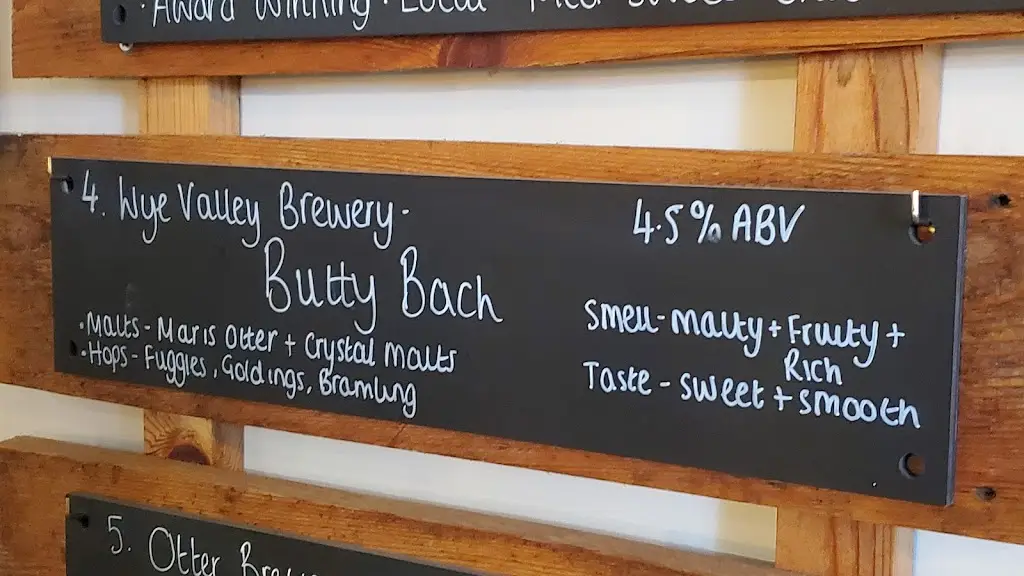 · Award Winning · Local
4. Wye Valley Brewery -
Butty Bach
4.5% ABV
· Malts - Maris Otter + Crystal malts
· Hops - Fuggles, Goldings, Bramling
Smell - malty + Fruity +
Rich
Taste - sweet + smooth
5. Otter